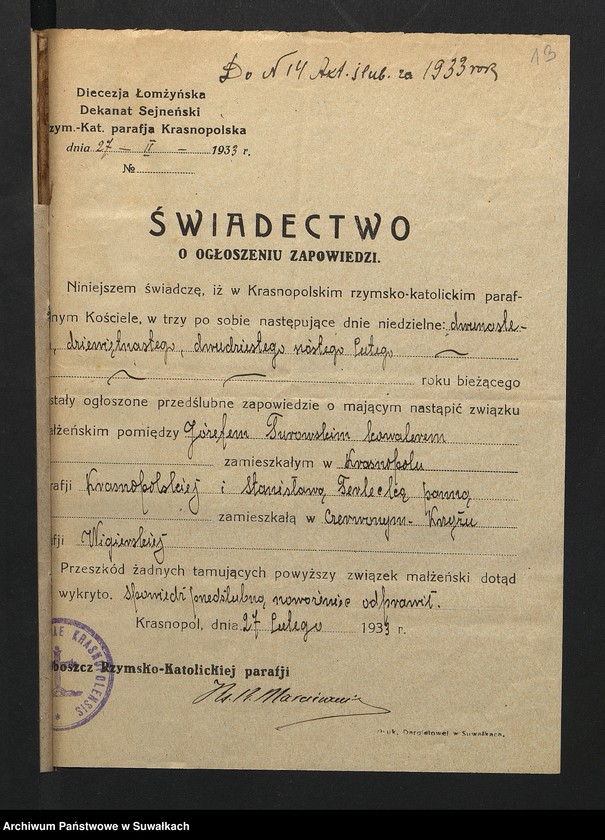 Do N 14 Akt. ślub. za 1933 rok
13
Diecezja Łomżyńska
Dekanat Sejneński
zym.-Kat. parafja Krasnopolska
dnia 27 — II — 1933 r.
№
ŚWIADECTWO
O OGŁOSZENIU ZAPOWIEDZI.
Niniejszem świadczę, iż w Krasnopolskim rzymsko-katolickim paraf-
nym Kościele, w trzy po sobie następujące dnie niedzielne: dwunaste-
, dziewiętnastego, dwudziestego Lutego
roku bieżącego
stały ogłoszone przedślubne zapowiedzie o mającym nastąpić związku
ałżeńskim pomiędzy Józefem Turowskim kawalerem
zamieszkałym w Krasnopolu
rafji Krasnopolskiej i Stanisławą Terlecką panną
zamieszkałą w Czerwonym-Krzyżu
fji Wigierskiej
Przeszkód żadnych tamujących powyższy związek małżeński dotąd
wykryto. Spowiedź przedślubną odprawił.
Krasnopol, dnia 27 Lutego 1933 r.
boszcz Rzymsko-Katolickiej parafji
AE KRASNOPOLENSIS
w Suwałkach.
Archiwum Państwowe w Suwałkach